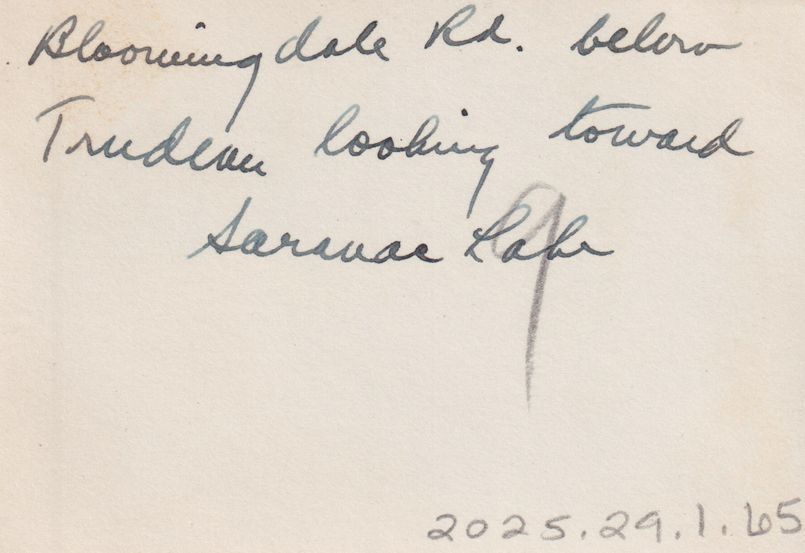 Bloomingdale Rd. below
Trudeau looking toward
Saranac Lake
9
2025.29.1.65